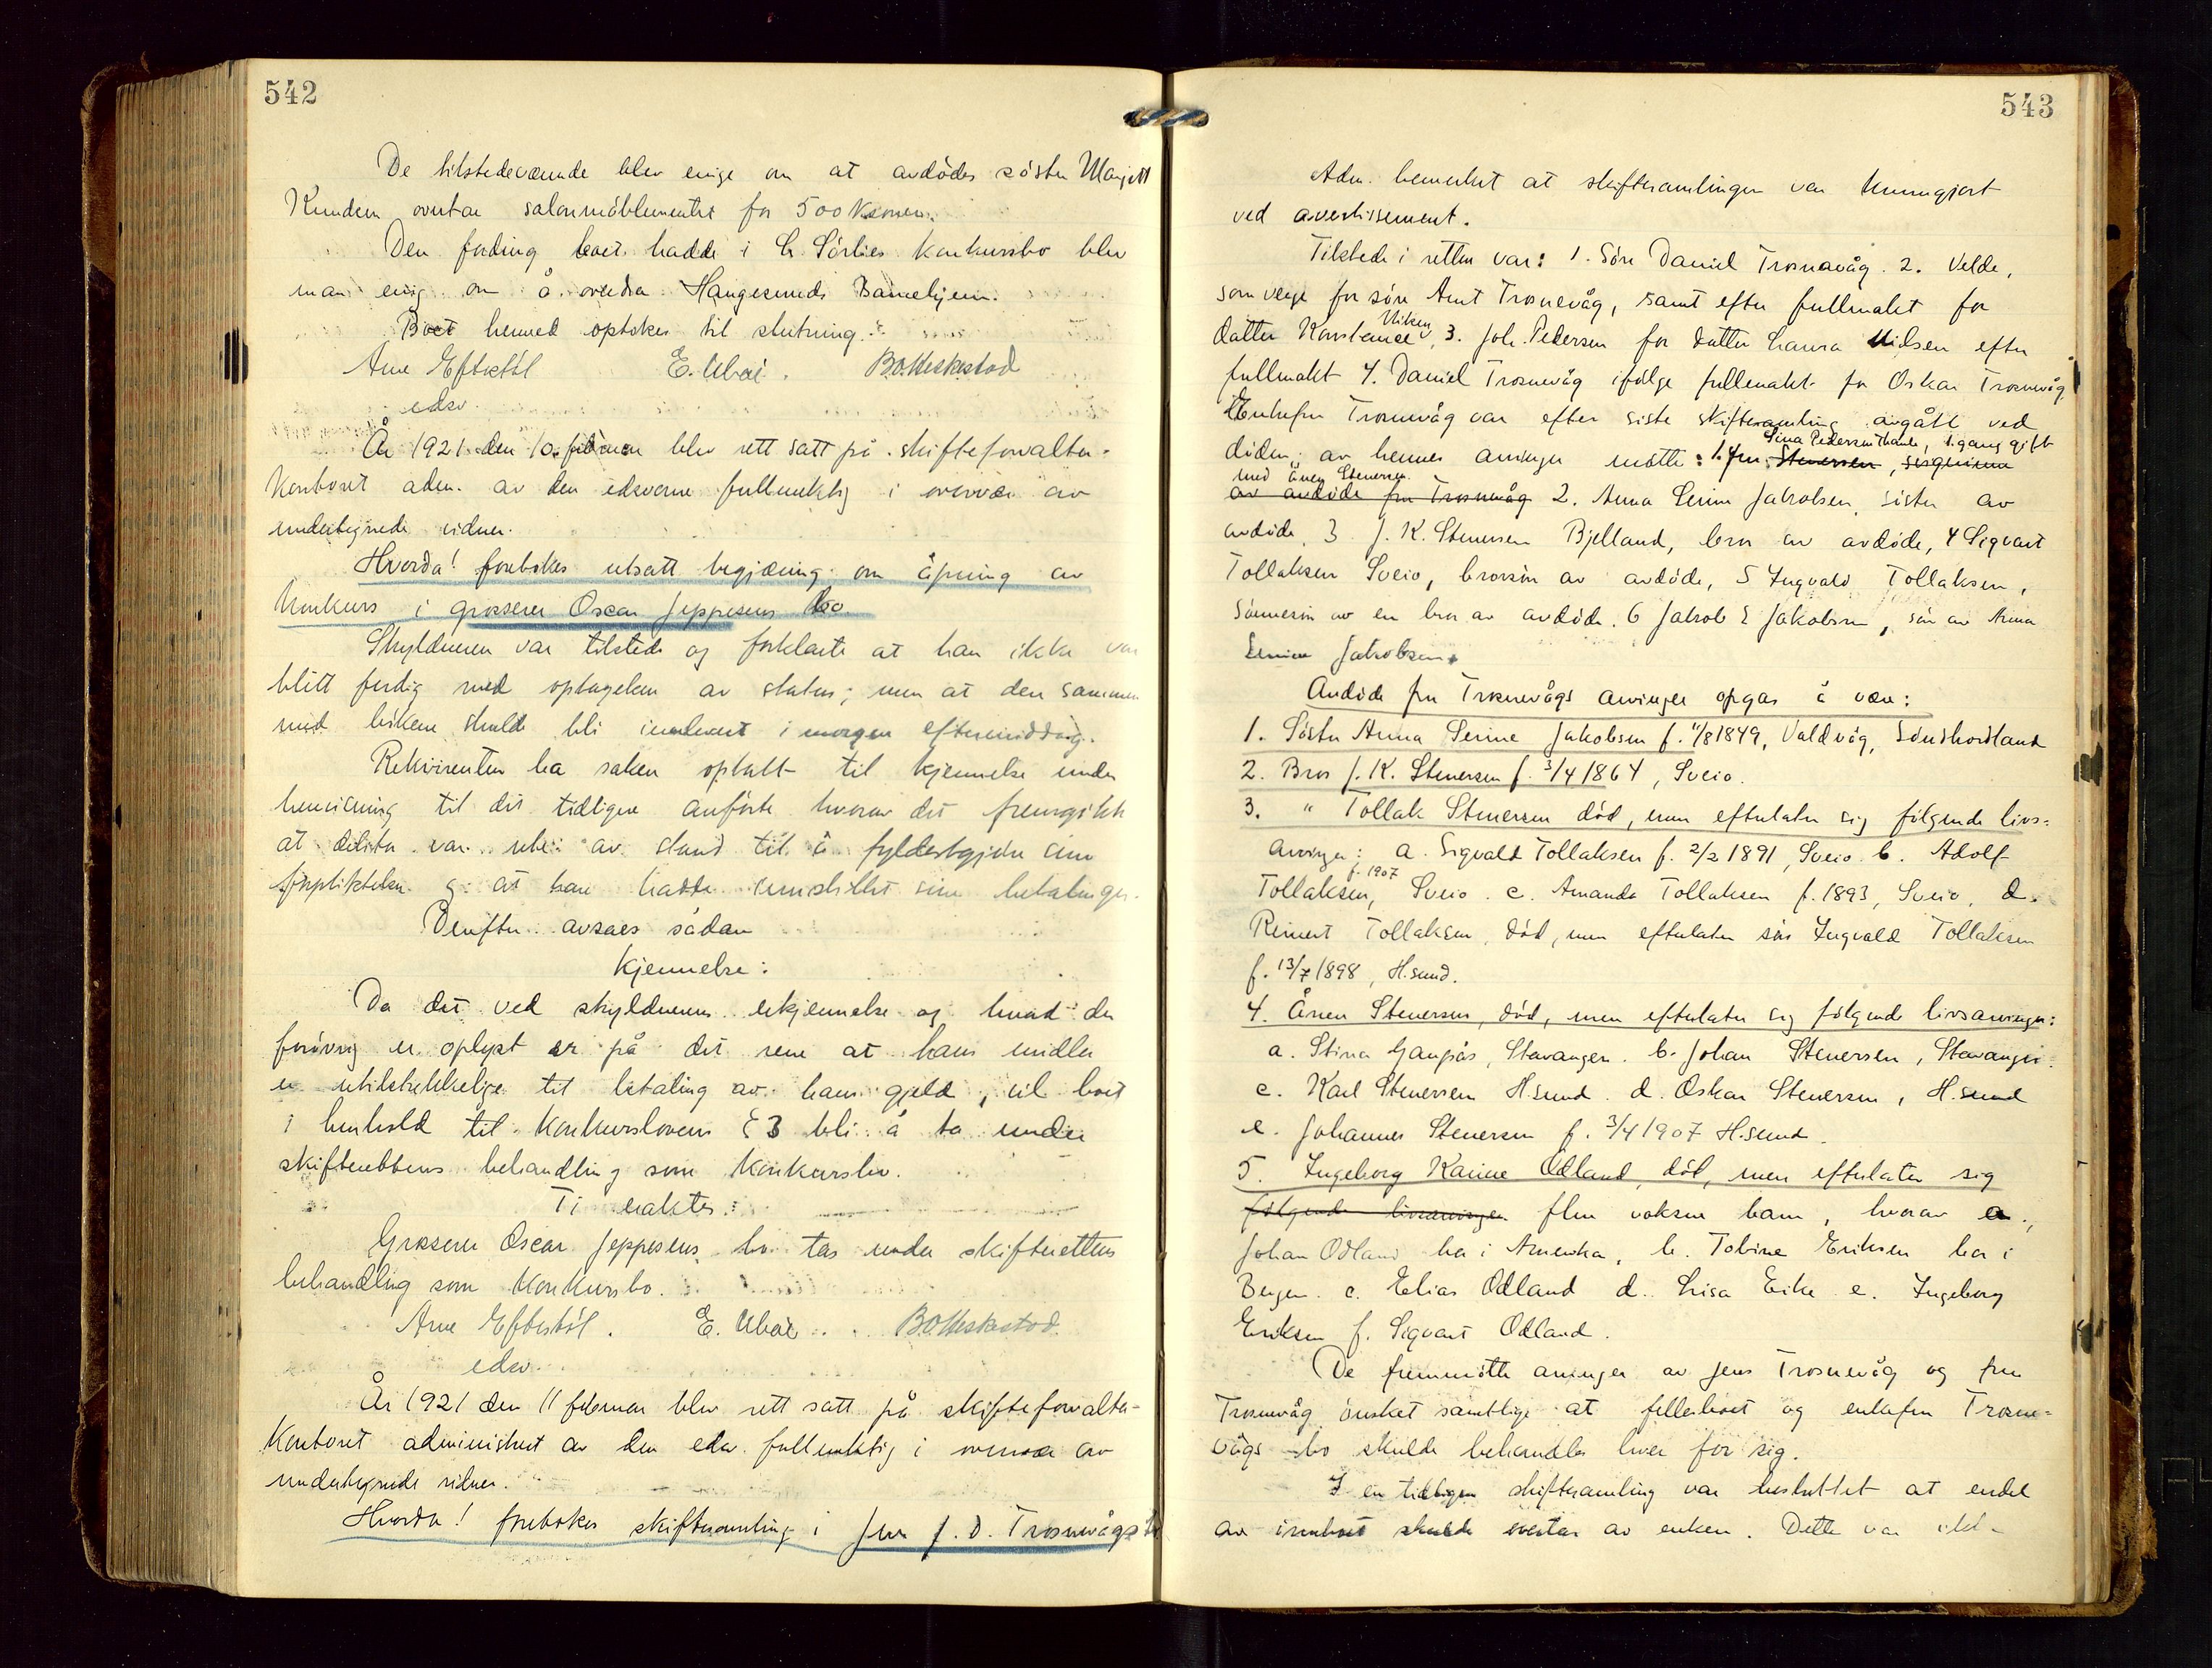 542
De tilstedeværende blev enige om at avdödes söster Marjett
Knudsen overtar salonmöblementet for 500 kroner.
Den fordring boet hadde i Chr. Sörlies konkursbo blev
man enig om å overdra Haugesunds Barnehjem.
Boet hermed optokes til slutning.
Arne Eftestöl E. Ubøe. B.O. Meskestad
edsv.
År 1921 den 10. februar blev rett satt på skifteforvalter-
kontoret adm. av den edsvorne fullmektig i overvær av
undertegnede vidner.
Hvorda! foretokes utsatt begjæring om åpning av
konkurs i grosserer Oscar Jeppesens bo
Skyldneren var tilstede og forklarte at han ikke var
blitt ferdig med optagelsen av status; men at den sammen
med bökene skulde bli innlevert i morgen eftermiddag.
Rekvirenten ba saken optatt til kjennelse under
henvisning til det tidligere anförte hvorav det fremgikk
at debitor var ute av stand til å fyldestgjöre sine
forpliktelser og at han hadde innstillet sine betalinger.
Derefter avsaes sådan
kjennelse:
Da det ved skyldnerens erkjennelse og hvad der
forövrig er oplyst er på det rene at hans midler
er utilstrekkelige til betaling av hans gjeld, vil boet
i henhold til konkurslovens § 3 bli å ta under
skifterettens behandling som konkursbo.
Ti eraktes:
Grosserer Oscar Jeppesens bo tas under skifterettens
behandling som konkursbo.
Arne Eftestöl. E. Ubøe. B.O. Meskestad.
edsv.
År 1921 den 11 februar blev rett satt på skifteforvalter-
kontoret administrert av den edsv. fullmektig i overvær av
undertegnede vidner.
Hvorda! foretokes skiftesamling i Jens J. D. Trosnevågs bo
543
Adm. bemerket at skiftesamlingen var kunngjort
ved avertissement.
Tilstede i retten var: 1. Sön Daniel Trosnavåg. 2. Velde,
som verge for sön Arnt Trosnevåg, samt efter fullmakt for
datter Konstanse Viken, 3. Joh. Pedersen for datter Laura Nilsen efter
fullmakt 4. Daniel Trosnevåg ifölge fullmakt for Oskar Trosnevåg
Enkefru Trosnevåg var efter siste skiftesamling avgått ved
döden, av hennes arvinger mötte: 1. fru Stenersen, svigerinne
Stina Pedersen Thante, 1. gang gift
med Ånen Stenersen.
av avdöde fru Trosnevåg 2. Anna Serine Jakobsen, söster av
avdöde, 3 J. K. Stenersen Bjelland, bror av avdöde, 4 Sigvart
Tollaksen Sveio, brorsön av avdöde, 5 Ingvald Tollaksen,
sönnesön av en bror av avdöde. 6 Jakob E Jakobsen, sön av Anna
Serine Jakobsen.
Avdöde fru Trosnevågs arvinger opgas å være:
1. Söster Anna Serine Jakobsen f. 11/8 1849, Valdvåg, Söndhordland
2. Bror J. K. Stenersen f. 3/4 1864, Sveio.
3. " Tollak Stenersen död, men efterlater sig fölgende livs-
arvinger: a. Sigvald Tollaksen f. 2/2 1891, Sveio. b. Adolf
Tollaksen, f. 1907 Sveio. c. Amanda Tollaksen f. 1893, Sveio, d.
Reinert Tollaksen, död, men efterlater sön Ingvald Tollaksen
f. 13/7 1898, H.sund.
4. Ånen Stenersen, död, men efterlater sig fölgende livsarvinger:
a. Stina Gaupås, Stavanger. b. Johan Stenersen, Stavanger.
c. Karl Stenersen H.sund. d. Oskar Stenersen, H.sund
e. Johannes Stenersen f. 3/4 1907 H.sund.
5. Ingeborg Karine Ödland, död, men efterlater sig
fölgende livsarvinger flere voksne barn, hvorav a.,
Johan Ödland bor i Amerika, b. Tobine Eriksen bor i
Bergen. c. Elias Ödland d. Lisa Eike e. Ingeborg
Eriksen f. Sigvart Ödland.
De fremmötte arvinger av Jens Trosnevåg og fru
Trosnevåg önsket samtlige at fellesboet og enkefru Trosne-
vågs bo skulde behandles hver for sig.
I en tidligere skiftesamling var besluttet at endel
av innboet skulde overtas av enken. Dette var ikke